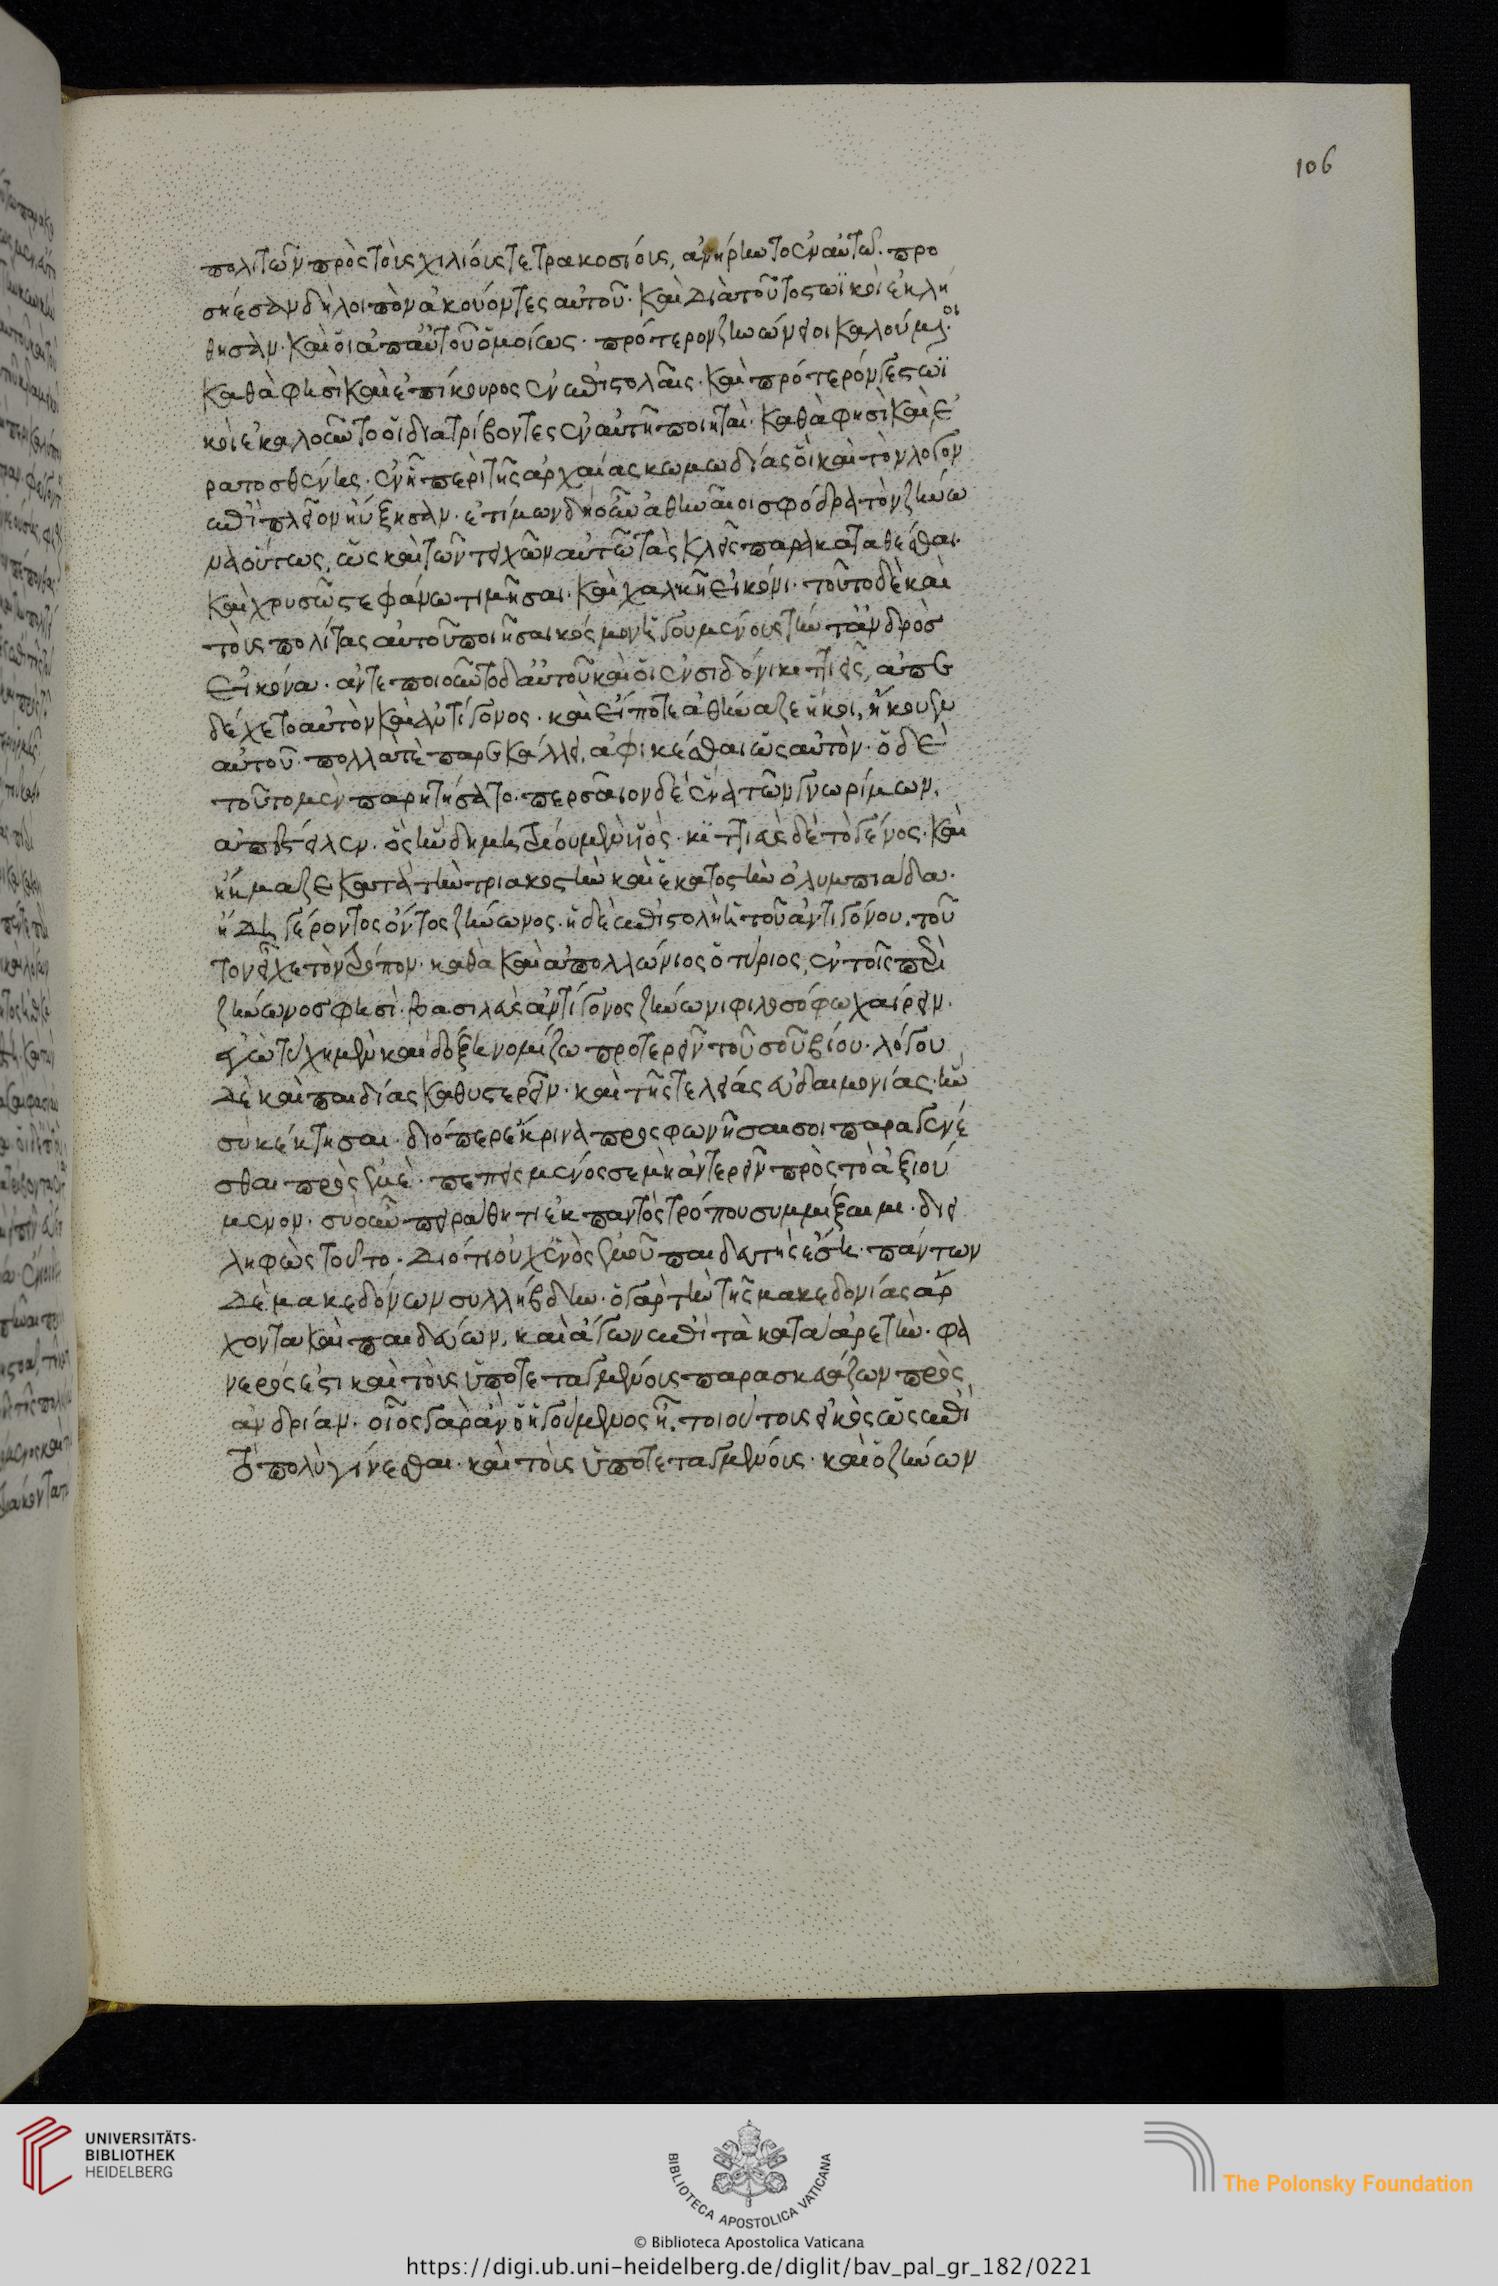 106
πολιτῶν πρὸς τοὺς χιλίους τετρακοσίους, ἀνήρηντο ἐν αὐτῶ. προ
σήεσαν δὴ λοιπὸν ἀκούοντες αὐτοῦ· καὶ διὰ τοῦτο στωϊκοὶ ἐκλή
θησαν. καὶ οἱ ἀπ' αὐτοῦ ὁμοίως· πρότερον ζηνώνειοι καλούμενοι
καθά φησὶ καὶ ἐπίκουρος ἐν ἐπιστολαῖς. καὶ πρότερόν γε στωϊ
κοὶ ἐκαλοῦντο οἱ διατρίβοντες ἐν αὐτῆ ποιηταί. καθά φησὶ καὶ ἐ
ρατοσθένης. ἐν ηῖ περὶ τῆς ἀρχαίας κωμωδίας οἳ καὶ τὸν λόγον
ἐπὶ πλεῖον ηὔξησαν. ἐτίμων δὴ οὖν ἀθηναῖοι σφόδρα τὸν ζήνω
να οὕτως, ὡς καὶ τῶν τειχῶν αὐτῶ τὰς κλεῖς παρακαταθέσθαι.
καὶ χρυσῶ στεφάνω τιμῆσαι. καὶ χαλκῆ εἰκόνι. τοῦτο δὲ καὶ
τοὺς πολίτας αὐτοῦ ποιῆσαι κόσμον ἡγουμένους τὴν τἀνδρὸσ
εἰκόνα. ἀντεποιοῦντο δ' αὐτοῦ καὶ οἱ ἐν σιδόνι κιττιεῖς, ἀπε
δέχετο αὐτὸν καὶ ἀντίγονος. καὶ εἴποτε ἀθήναζε ἥκοι, ἤκουεν
αὐτοῦ. πολλά τὲ παρεκάλλει, ἀφικέσθαι ὡς αὐτὸν. ὁ δὲ
τοῦτο μὲν παρητήσατο. περσαῖον δὲ ἕνα τῶν γνωρίμων,
ἀπέστειλεν. ὃς ἦν δημητρίου μὲν ὑϊὸς. κϊττιεὺς δὲ τὸ γένος. καὶ
ἤκμαζε κατὰ τὴν τριακοστὴν καὶ ἑκατοστὴν ὀλυμπιάδα.
ἤδη γέροντος ὄντος ζήνωνος. ἡ δὲ ἐπιστολὴ ἡ τοῦ ἀντιγόνου. τοῦ
τον εἶχε τὸν τρόπον. καθὰ καὶ ἀπολλώνιος ὁ τύριος, ἐν τοῖς περὶ
ζήνωνοσ φησὶ. βασιλεὺς ἀντίγονος ζήνωνι φιλοσόφω χαίρειν.
ἐγὼ τύχη μὲν καὶ δόξη νομίζω προτερεῖν τοῦ σοῦ βίου. λόγου
δὲ καὶ παιδίας καθυστερεῖν. καὶ τῆς τελείας εὐδαιμονίας. ἣν
σὺ κέκτησαι. διόπερ ἔκρινα προσφωνῆσαι σοι παραγενέ
σθαι πρὸς ἐμὲ. πεπεισμένος σε μὴ ἀντερεῖν πρὸς τὸ ἀξιού
μενον. σὺ οὖν πειράθητι ἐκ παντὸς τρόπου συμμῖξαι μοι. διει
ληφὼς τοῦτο. διότι οὐχ ἑνὸς ἐμοῦ παιδευτὴς ἔση. πάντων
δὲ μακεδόνων συλλήβδην. ὁ γὰρ τὴν τῆς μακεδονίας ἄρ
χοντα καὶ παιδεύων, καὶ ἄγων ἐπὶ τὰ κατ' ἀρετὴν. φα
νερός ἐστι καὶ τοὺς ὑποτεταγμένους παρασκευάζων πρὸς
ἀνδρίαν. οἷος γὰρ ἂν ὁ ἡγούμενος ἦ. τοιούτους εἰκὸς ὡς ἐπὶ
τὸ πολὺ γίνεσθαι. καὶ τοὺς ὑποτεταγμένους. καὶ ὁ ζήνων
UNIVERSITÄTS-
BIBLIOTHEK
HEIDELBERG
BIBLIOTECA APOSTOLICA VATICANA
© Biblioteca Apostolica Vaticana
The Polonsky Foundation
https://digi.ub.uni-heidelberg.de/diglit/bav_pal_gr_182/0221